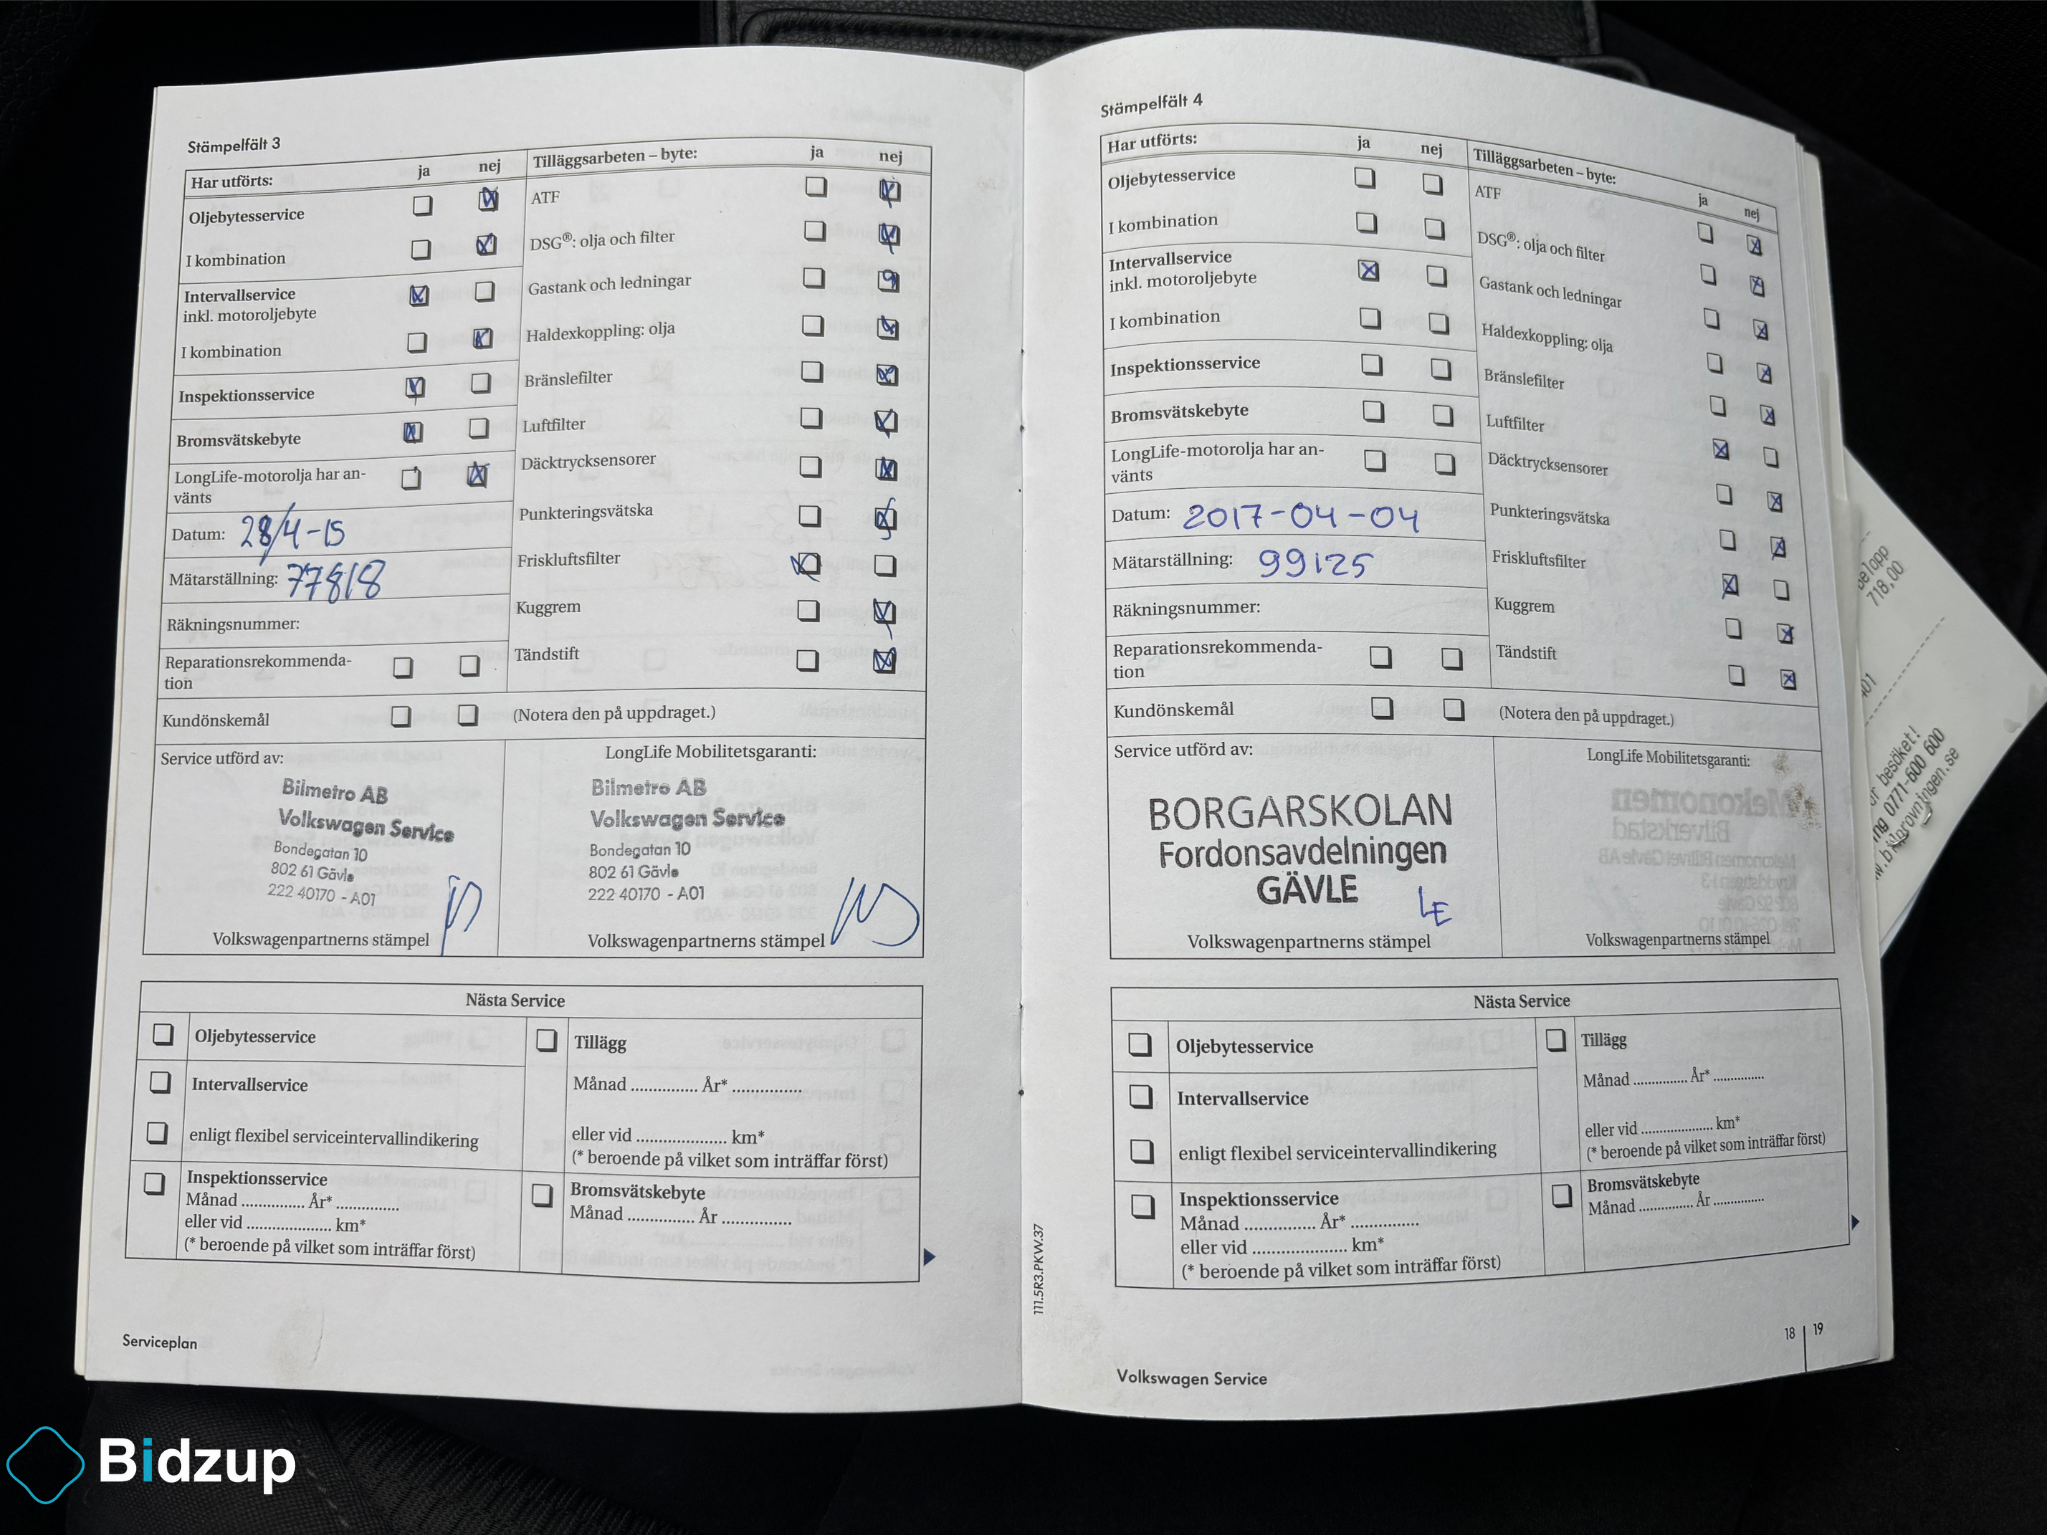 Stämpelfält 3
Har utförts: ja nej
Oljebytesservice
I kombination
Intervallservice
inkl. motoroljebyte
I kombination
Inspektionsservice
Bromsvätskebyte
LongLife-motorolja har an-
vänts
Datum: 28/4-15
Mätarställning: 77818
Räkningsnummer:
Reparationsrekommenda-
tion
Kundönskemål
(Notera den på uppdraget.)
Tilläggsarbeten – byte: ja nej
ATF
DSG®: olja och filter
Gastank och ledningar
Haldexkoppling: olja
Bränslefilter
Luftfilter
Däcktrycksensorer
Punkteringsvätska
Friskluftsfilter
Kuggrem
Tändstift
Service utförd av:
Bilmetro AB
Volkswagen Service
Bondegatan 10
802 61 Gävle
222 40170 - A01
Volkswagenpartnerns stämpel
LongLife Mobilitetsgaranti:
Bilmetro AB
Volkswagen Service
Bondegatan 10
802 61 Gävle
222 40170 - A01
Volkswagenpartnerns stämpel
Nästa Service
Oljebytesservice
Intervallservice
enligt flexibel serviceintervallindikering
Inspektionsservice
Månad .............. År* ..............
eller vid .................... km*
(* beroende på vilket som inträffar först)
Tillägg
Månad .............. År* ..............
eller vid .................... km*
(* beroende på vilket som inträffar först)
Bromsvätskebyte
Månad .............. År ..............
Serviceplan
Stämpelfält 4
Har utförts: ja nej
Oljebytesservice
I kombination
Intervallservice
inkl. motoroljebyte
I kombination
Inspektionsservice
Bromsvätskebyte
LongLife-motorolja har an-
vänts
Datum: 2017-04-04
Mätarställning: 99125
Räkningsnummer:
Reparationsrekommenda-
tion
Kundönskemål
(Notera den på uppdraget.)
Tilläggsarbeten – byte: ja nej
ATF
DSG®: olja och filter
Gastank och ledningar
Haldexkoppling: olja
Bränslefilter
Luftfilter
Däcktrycksensorer
Punkteringsvätska
Friskluftsfilter
Kuggrem
Tändstift
Service utförd av:
BORGARSKOLAN
Fordonsavdelningen
GÄVLE
LE
Volkswagenpartnerns stämpel
LongLife Mobilitetsgaranti:
Volkswagenpartnerns stämpel
Nästa Service
Oljebytesservice
Intervallservice
enligt flexibel serviceintervallindikering
Inspektionsservice
Månad .............. År* ..............
eller vid .................... km*
(* beroende på vilket som inträffar först)
Tillägg
Månad .............. År* ..............
eller vid .................... km*
(* beroende på vilket som inträffar först)
Bromsvätskebyte
Månad .............. År ..............
111.5R3.PKW.37
Volkswagen Service
18 | 19
718,00
besöket!
0771-600 600
Bidzup